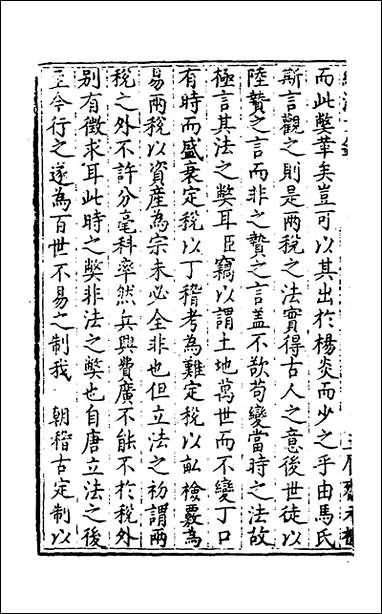 而此獘革矣豈可以其出於楊炎而少之乎由馬氏
斯言觀之則是兩税之法實得古人之意後世徒以
陸贄之言而非之贄之言盖不欲苟變當時之法故
極言其法之獘耳臣竊以謂土地萬世而不變丁口
有時而盛衰定税以丁稽考為難定税以畝檢覈為
易兩税以資産為宗未必全非也但立法之初謂兩
税之外不許分毫科率然兵興費廣不能不於税外
别有徵求耳此時之獘非法之獘也自唐立法之後
至今行之遂為百世不易之制我 朝稽古定制以